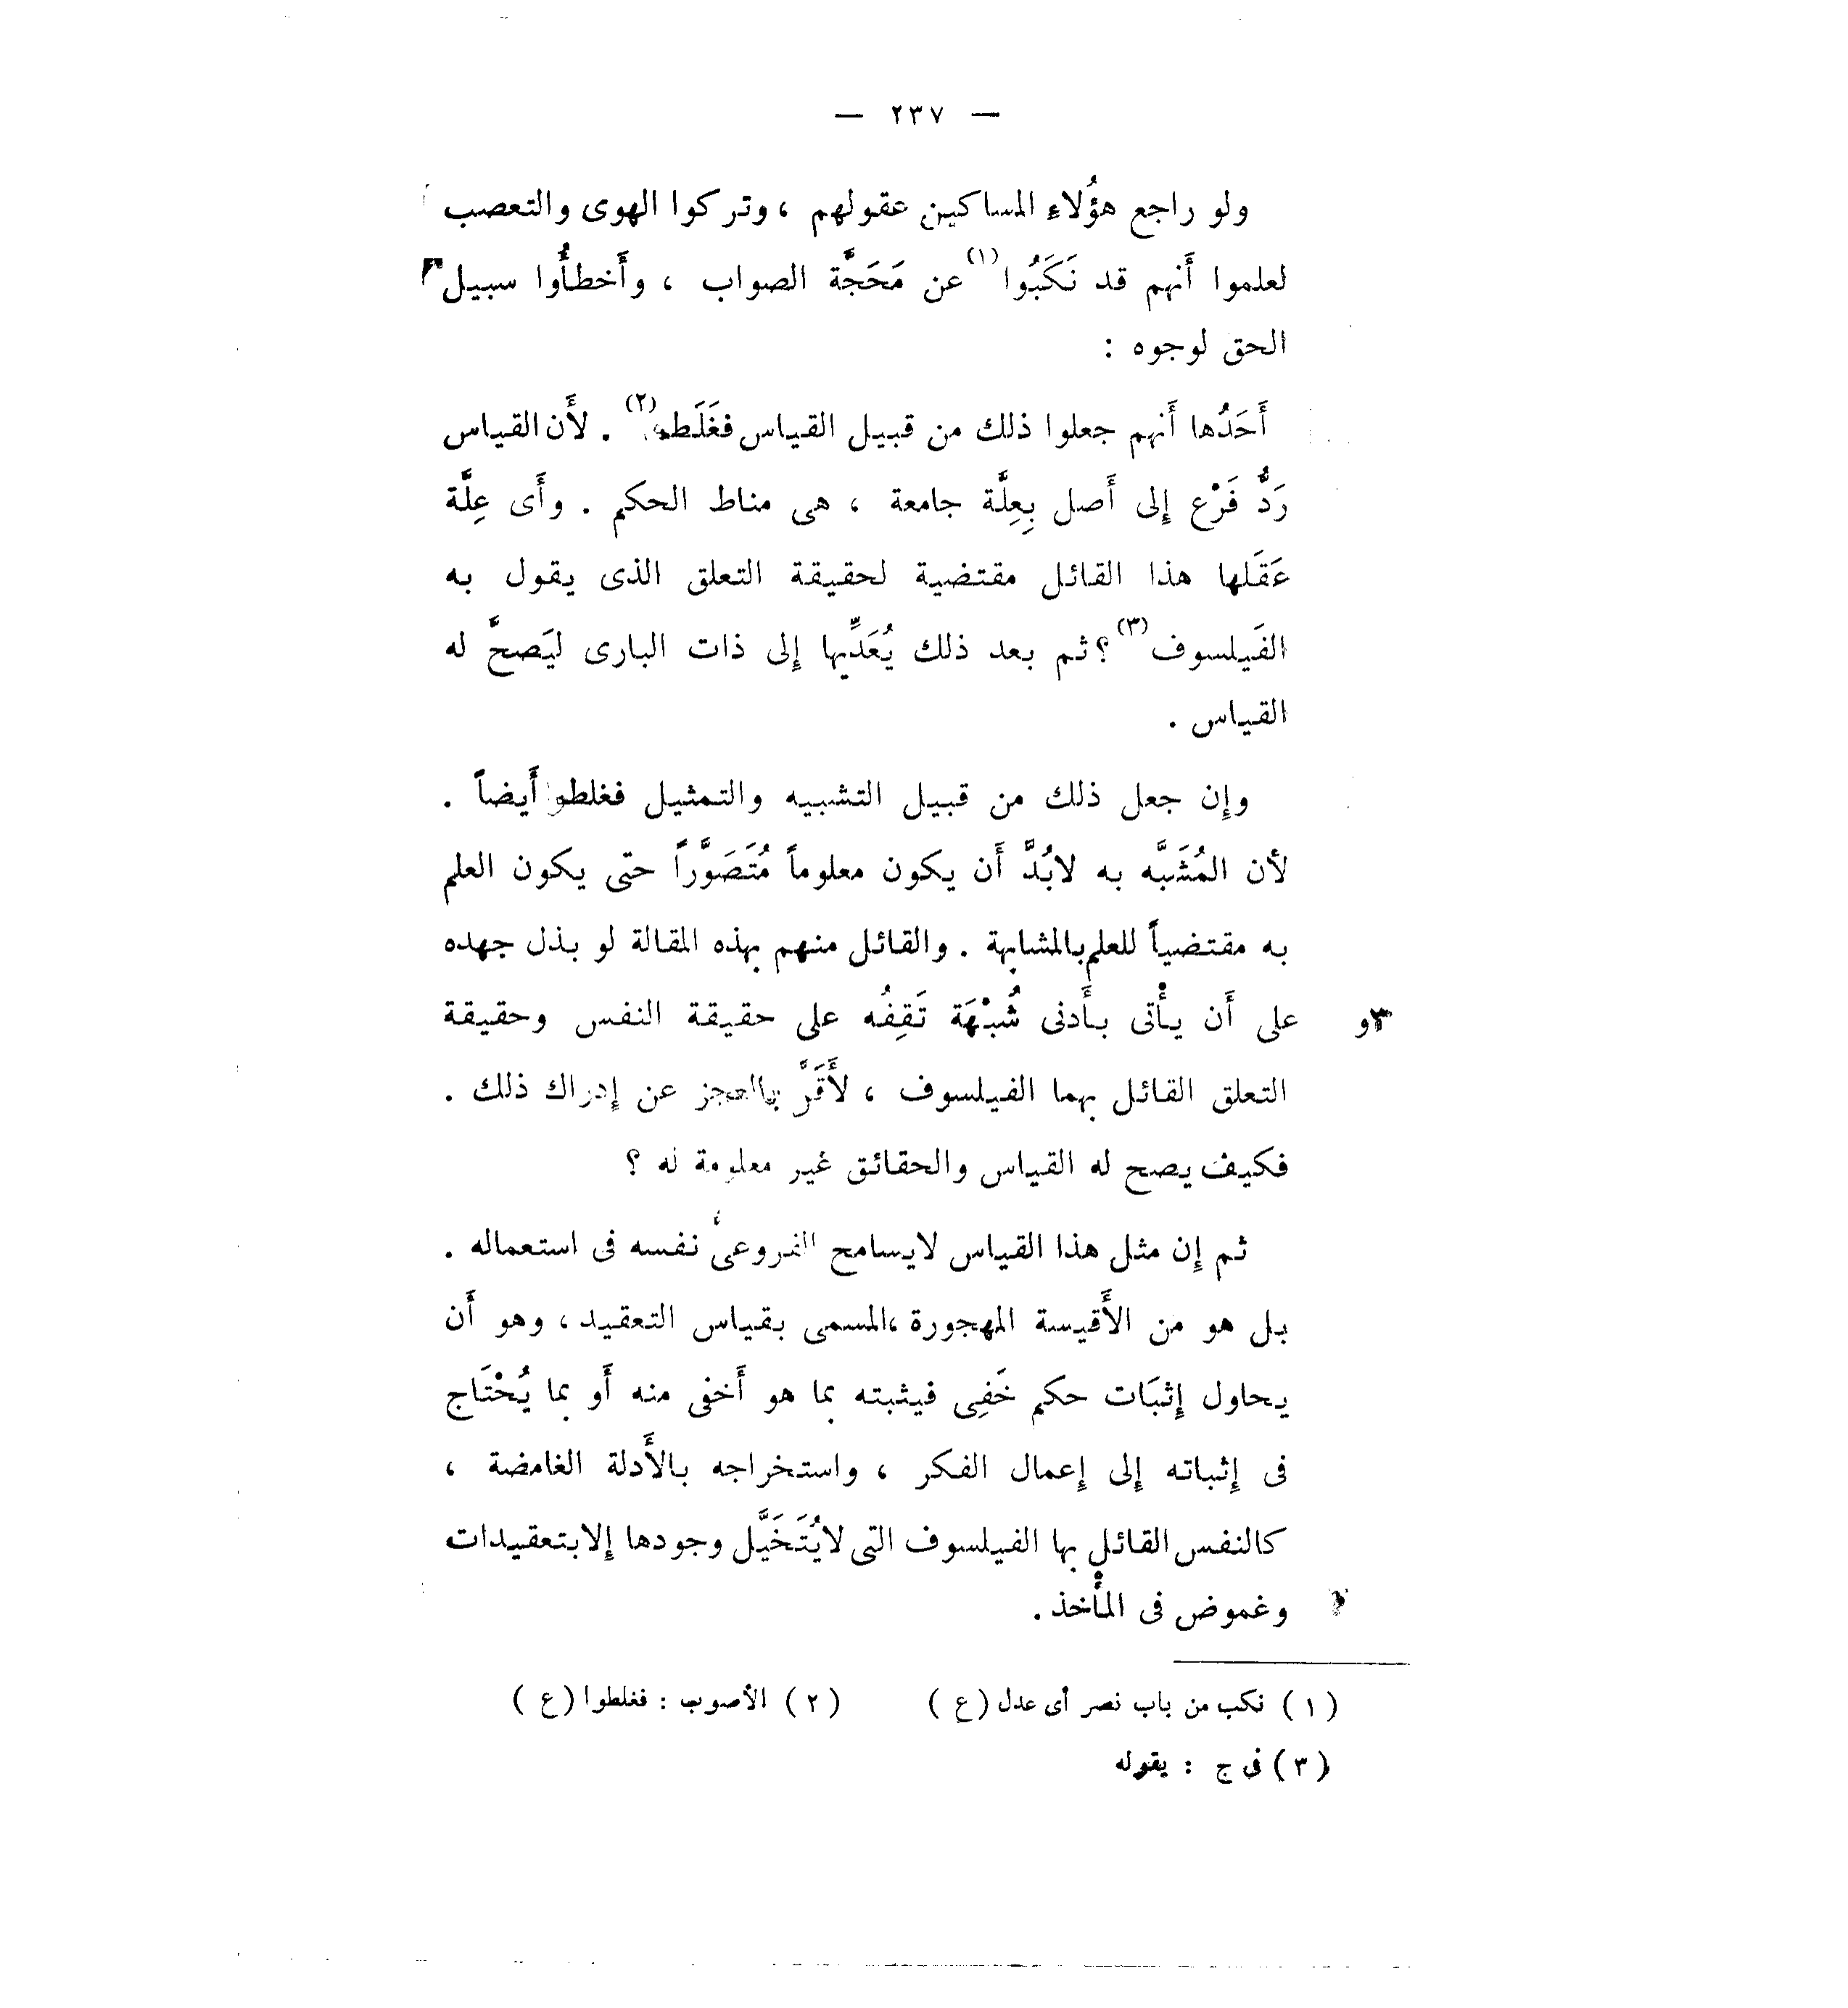 — ٢٣٧ —
ولو راجع هؤُلاءِ المساكين عقولهم ، وتركوا الهوى والتعصب
لعلموا أَنهم قد نَكَبُوا (١) عن مَحَجَّة الصواب ، وأَخطأُوا سبيل
الحق لوجوه :
أَحَدُها أَنهم جعلوا ذلك من قبيل القياس فغَلَطه (٢) . لأَن القياس
رَدُّ فَرْع إِلى أَصل بِعِلَّة جامعة ، هى مناط الحكم . وأَى عِلَّة
عَقَلها هذا القائل مقتضية لحقيقة التعلق الذى يقول به
الفَيلسوف (٣) ؟ ثم بعد ذلك يُعَدِّيها إِلى ذات البارى ليَصحَّ له
القياس .
وإِن جعل ذلك من قبيل التشبيه والتمثيل فغلطوا أَيضاً .
لأن المُشَبَّه به لابُدَّ أَن يكون معلوماً مُتَصَوَّراً حتى يكون العلم
به مقتضياً للعلم بالمشابهة . والقائل منهم بهذه المقالة لو بذل جهده
٣و على أَن يأْتى بأَدنى شُبْهَة تَقِفُه على حقيقة النفس وحقيقة
التعلق القائل بهما الفيلسوف ، لأَقَرَّ بالعجز عن إِدراك ذلك .
فكيف يصح له القياس والحقائق غير معلومة له ؟
ثم إِن مثل هذا القياس لايسامح الفروعىُ نفسه فى استعماله .
بل هو من الأَقيسة المهجورة ،المسمى بقياس التعقيد ، وهو أَن
يحاول إِثبَات حكم خَفِى فيثبته بما هو أَخفى منه أَو بما يُحْتَاج
فى إِثباته إِلى إِعمال الفكر ، واستخراجه بالأَدلة الغامضة ،
كالنفس القائل بها الفيلسوف التى لايُتَخَيَّل وجودها إِلابتعقيدات
وغموض فى المأْخذ .
( ١ ) نكب من باب نصر أى عدل ( ع ) ( ٢ ) الأصوب : فغلطوا ( ع )
( ٣ ) فى ج : يقوله